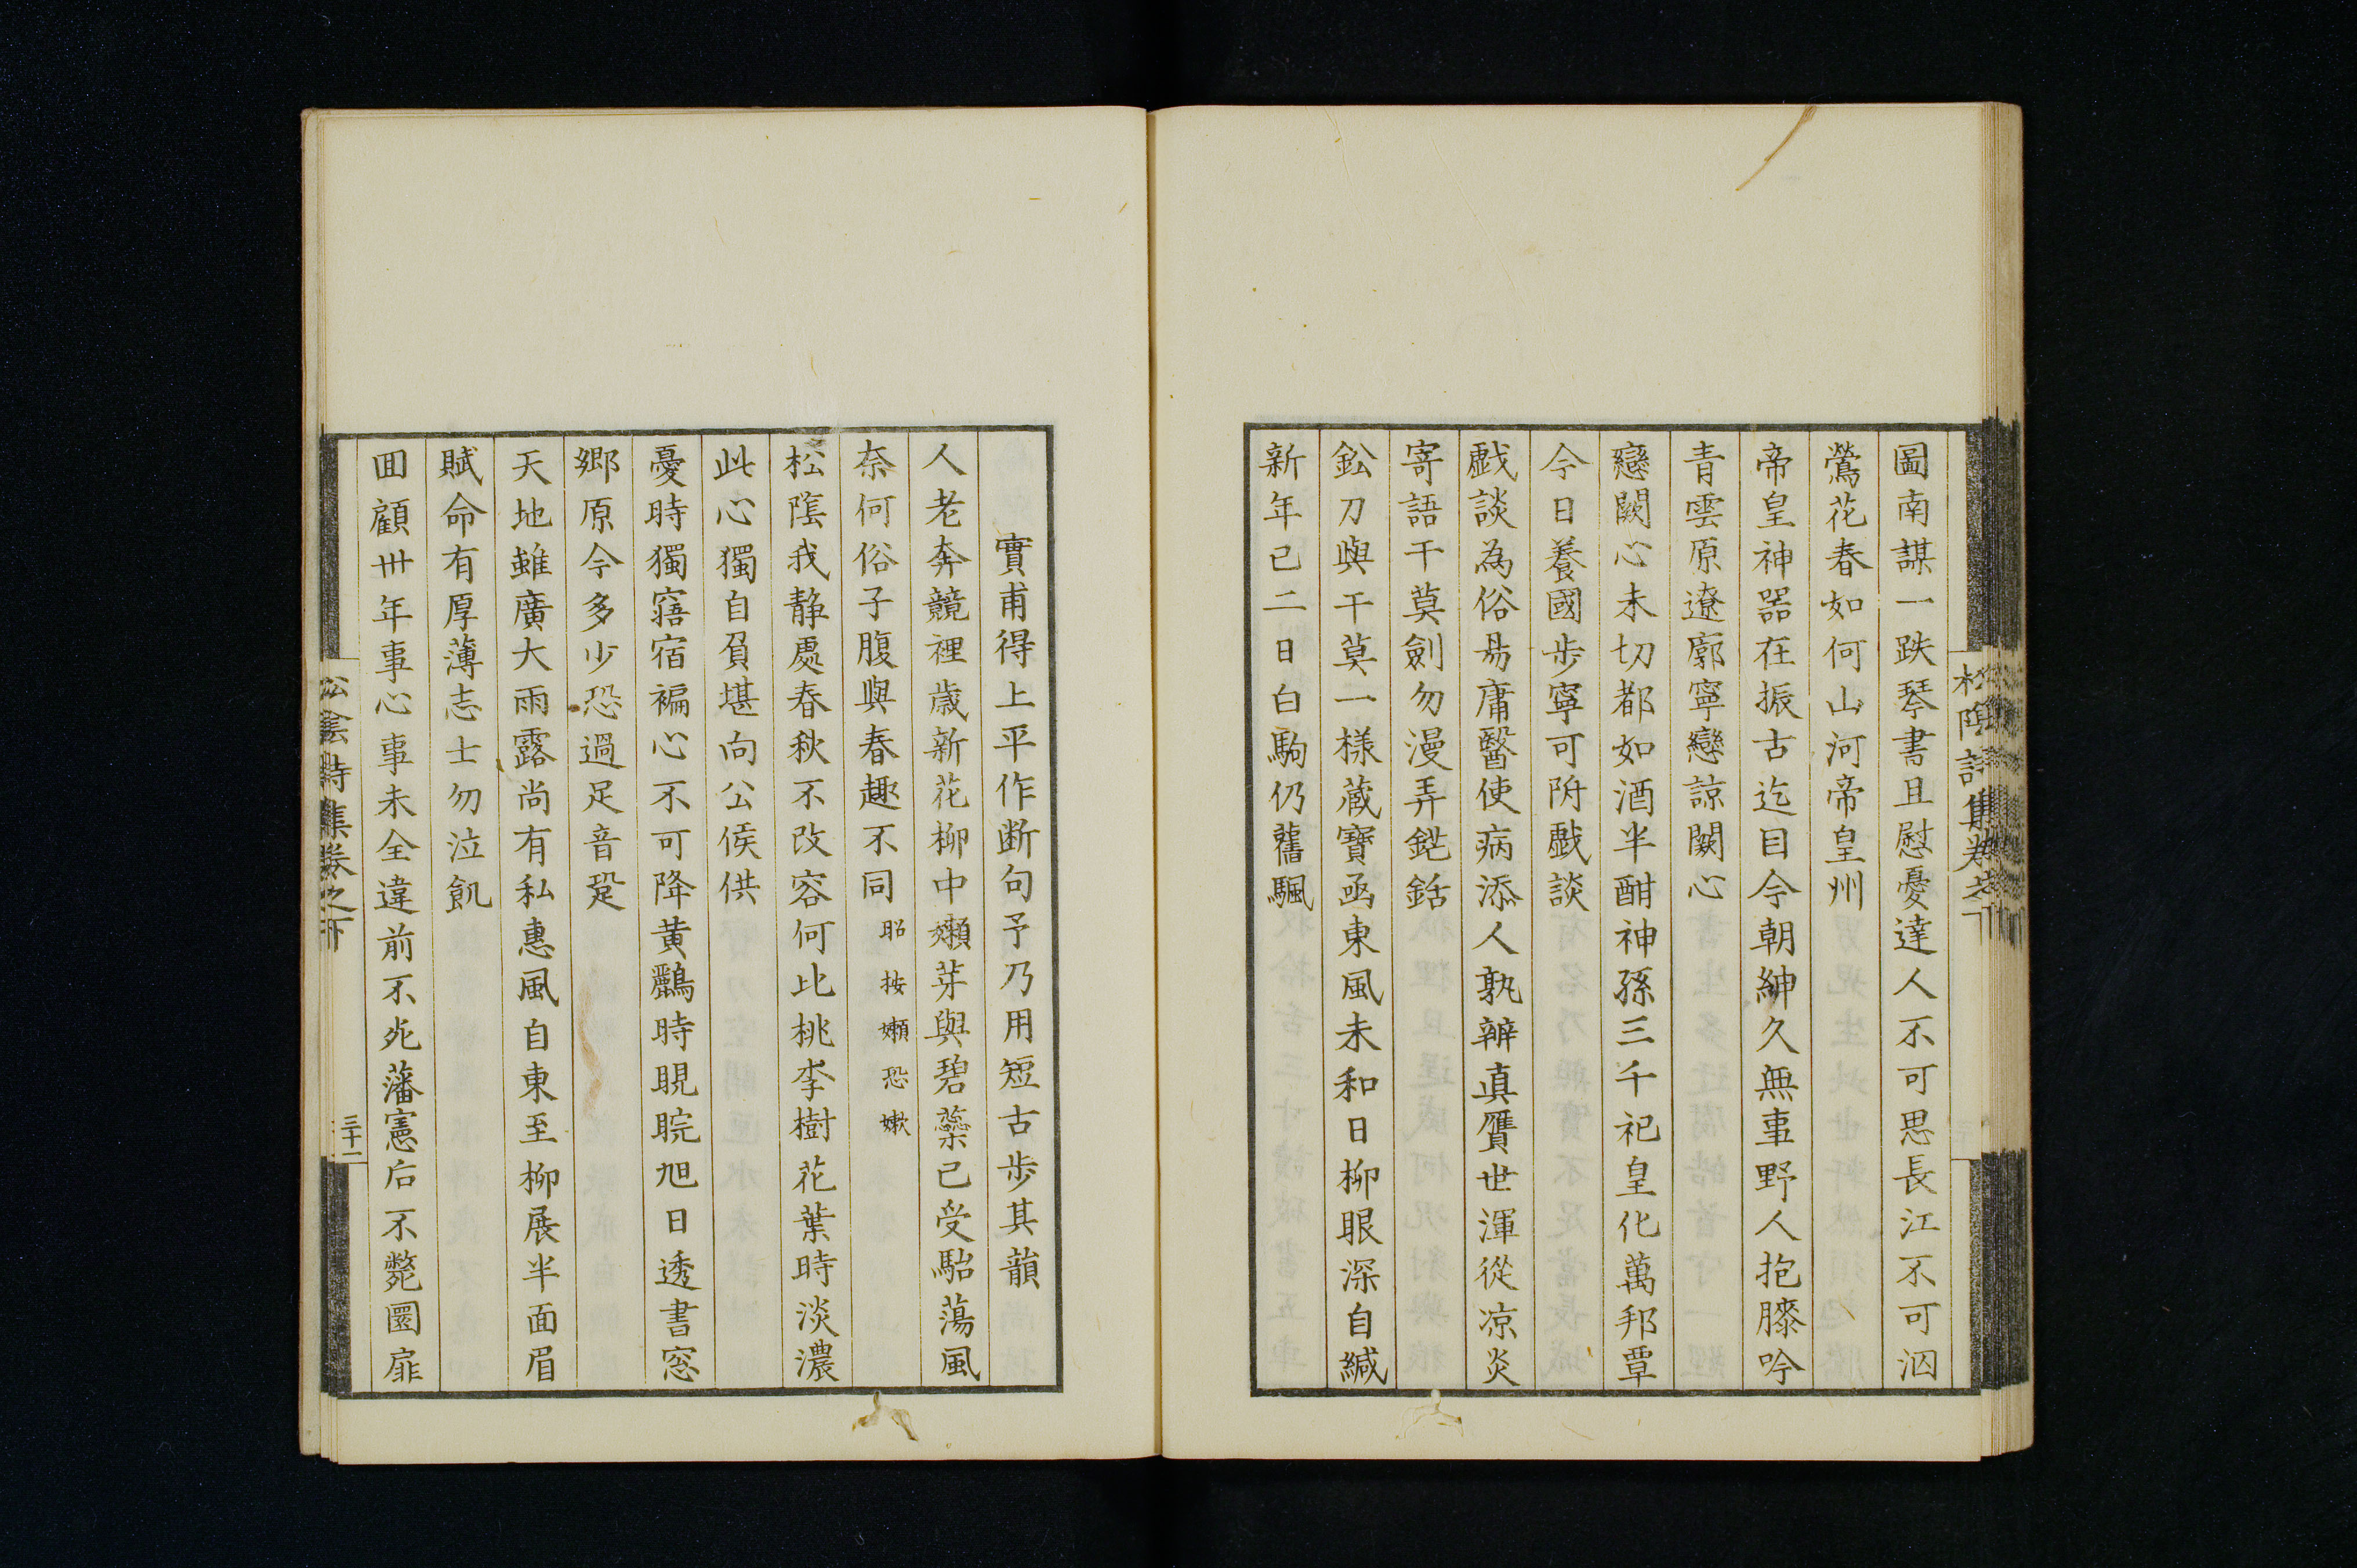 圖南謀一跌琴書且慰憂達人不可思長江不可泅
鶯花春如何山河帝皇州
帝皇神器在振古迄目今朝紳久無事野人抱膝吟
青雲原遼廓寧戀諒闕心
戀闕心未切都如酒半酣神孫三千祀皇化萬邦覃
今日養國步寧可附戲談
戲談為俗易庸醫使病添人孰辨真贋世渾從凉炎
寄語干莫劍勿漫弄鋩銛
鈆刀與干莫一様蔵寶函東風未和日柳眼深自緘
新年已二日白駒仍舊颿
實甫得上平作断句予乃用短古歩其韻
人老奔競裡歳新花柳中嬾芽與碧蘂已受駘蕩風
奈何俗子腹與春趣不同昭按嬾恐嫰
松隂我静處春秋不改容何比桃李樹花葉時淡濃
此心獨自負堪向公侯供
憂時獨寤宿褊心不可降黄鸝時睍睆旭日透書窓
郷原今多少恐過足音跫
天地雖廣大雨露尚有私惠風自東至柳展半面眉
賦命有厚薄志士勿泣飢
回顧卅年事心事未全違前不死藩憲后不斃圜扉
松陰詩集卷之下
三十一